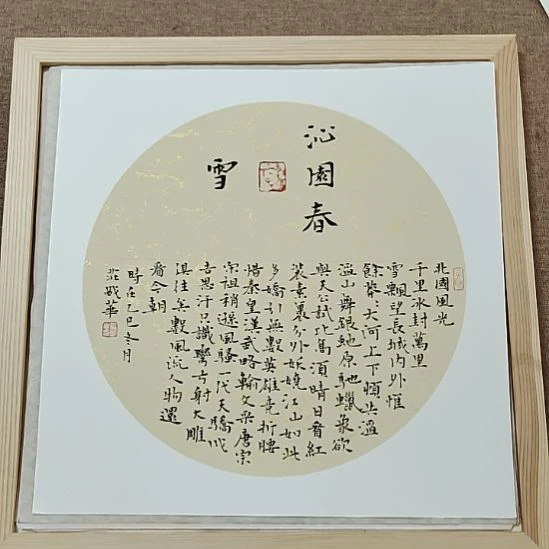 沁園春
雪
北國風光
千里冰封萬里
雪飄望長城内外惟
餘莽々大河上下頓失滔
滔山舞銀蛇原馳蠟象欲
與天公試比高須晴日看紅
裝素裹分外妖嬈江山如此
多嬌引無數英雄竞折腰
惜秦皇漢武略輸文采唐宗
宋祖稍遜風騷一代天驕成
吉思汗只識彎弓射大雕
俱往矣數風流人物還
看今朝
時在乙巳冬月
華